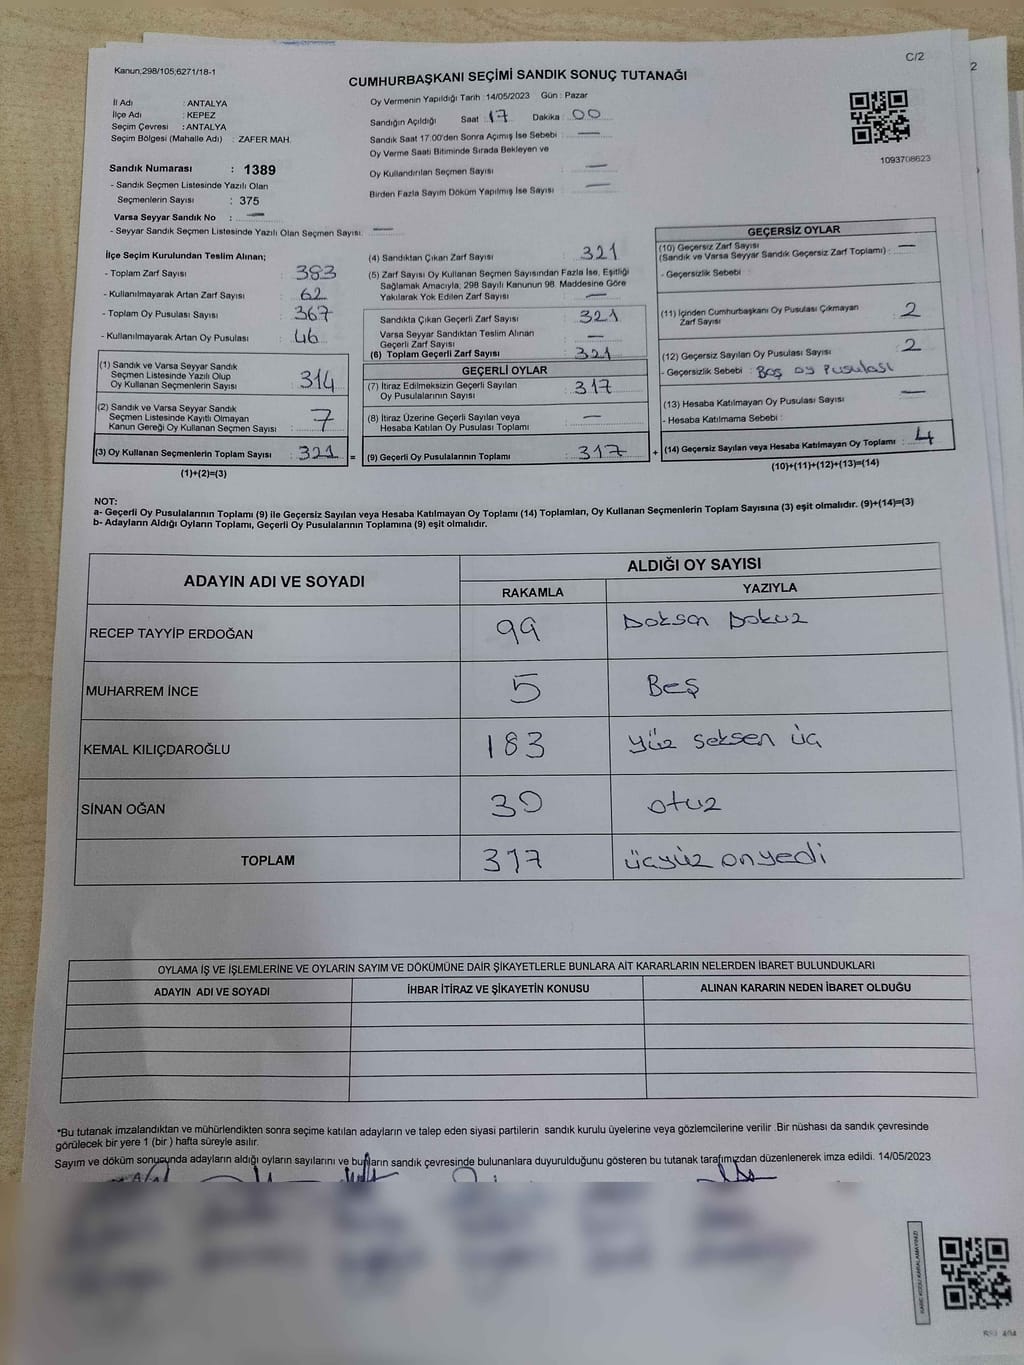 Kanun;298/105;6271/18-1
C/2
2
CUMHURBAŞKANI SEÇİMİ SANDIK SONUÇ TUTANAĞI
İl Adı : ANTALYA
İlçe Adı : KEPEZ
Seçim Çevresi : ANTALYA
Seçim Bölgesi (Mahalle Adı) : ZAFER MAH.
Sandık Numarası : 1389
- Sandık Seçmen Listesinde Yazılı Olan
Seçmenlerin Sayısı : 375
Varsa Seyyar Sandık No : —
- Seyyar Sandık Seçmen Listesinde Yazılı Olan Seçmen Sayısı: —
Oy Vermenin Yapıldığı Tarih : 14/05/2023 Gün : Pazar
Sandığın Açıldığı Saat : 17 Dakika : 00
Sandık Saat 17:00'den Sonra Açılmış İse Sebebi : —
Oy Verme Saati Bitiminde Sırada Bekleyen ve
Oy Kullandırılan Seçmen Sayısı : —
Birden Fazla Sayım Döküm Yapılmış İse Sayısı : —
1093708623
İlçe Seçim Kurulundan Teslim Alınan;
- Toplam Zarf Sayısı : 383
- Kullanılmayarak Artan Zarf Sayısı : 62
- Toplam Oy Pusulası Sayısı : 367
- Kullanılmayarak Artan Oy Pusulası : 46
(1) Sandık ve Varsa Seyyar Sandık
Seçmen Listesinde Yazılı Olup
Oy Kullanan Seçmenlerin Sayısı : 314
(2) Sandık ve Varsa Seyyar Sandık
Seçmen Listesinde Kayıtlı Olmayan
Kanun Gereği Oy Kullanan Seçmen Sayısı : 7
(3) Oy Kullanan Seçmenlerin Toplam Sayısı : 321
(1)+(2)=(3)
(4) Sandıktan Çıkan Zarf Sayısı : 321
(5) Zarf Sayısı Oy Kullanan Seçmen Sayısından Fazla İse, Eşitliği
Sağlamak Amacıyla, 298 Sayılı Kanunun 98. Maddesine Göre
Yakılarak Yok Edilen Zarf Sayısı : —
Sandıkta Çıkan Geçerli Zarf Sayısı : 321
Varsa Seyyar Sandıktan Teslim Alınan
Geçerli Zarf Sayısı : —
(6) Toplam Geçerli Zarf Sayısı : 321
GEÇERLİ OYLAR
(7) İtiraz Edilmeksizin Geçerli Sayılan
Oy Pusulalarının Sayısı : 317
(8) İtiraz Üzerine Geçerli Sayılan veya
Hesaba Katılan Oy Pusulaları Toplamı : —
= (9) Geçerli Oy Pusulalarının Toplamı : 317
GEÇERSİZ OYLAR
(10) Geçersiz Zarf Sayısı
(Sandık ve Varsa Seyyar Sandık Geçersiz Zarf Toplamı) : —
- Geçersizlik Sebebi :
(11) İçinden Cumhurbaşkanı Oy Pusulası Çıkmayan
Zarf Sayısı : 2
(12) Geçersiz Sayılan Oy Pusulası Sayısı : 2
- Geçersizlik Sebebi : Boş oy Pusulası
(13) Hesaba Katılmayan Oy Pusulası Sayısı : —
- Hesaba Katılmama Sebebi :
+ (14) Geçersiz Sayılan veya Hesaba Katılmayan Oy Toplamı : 4
(10)+(11)+(12)+(13)=(14)
NOT:
a- Geçerli Oy Pusulalarının Toplamı (9) ile Geçersiz Sayılan veya Hesaba Katılmayan Oy Toplamı (14) Toplamları, Oy Kullanan Seçmenlerin Toplam Sayısına (3) eşit olmalıdır. (9)+(14)=(3)
b- Adayların Aldığı Oyların Toplamı, Geçerli Oy Pusulalarının Toplamına (9) eşit olmalıdır.
ADAYIN ADI VE SOYADI ALDIĞI OY SAYISI
RAKAMLA YAZIYLA
RECEP TAYYİP ERDOĞAN 99 Doksan Dokuz
MUHARREM İNCE 5 Beş
KEMAL KILIÇDAROĞLU 183 Yüz Seksen üç
SİNAN OĞAN 30 otuz
TOPLAM 317 üçyüz onyedi
OYLAMA İŞ VE İŞLEMLERİNE VE OYLARIN SAYIM VE DÖKÜMÜNE DAİR ŞİKAYETLERLE BUNLARA AİT KARARLARIN NELERDEN İBARET BULUNDUKLARI
ADAYIN ADI VE SOYADI İHBAR İTİRAZ VE ŞİKAYETİN KONUSU ALINAN KARARIN NEDEN İBARET OLDUĞU
*Bu tutanak imzalandıktan ve mühürlendikten sonra seçime katılan adayların ve talep eden siyasi partilerin sandık kurulu üyelerine veya gözlemcilerine verilir .Bir nüshası da sandık çevresinde
görülecek bir yere 1 (bir ) hafta süreyle asılır.
Sayım ve döküm sonucunda adayların aldığı oyların sayılarını ve bunların sandık çevresinde bulunanlara duyurulduğunu gösteren bu tutanak tarafımızdan düzenlenerek imza edildi. 14/05/2023
KARE KODU KARALAMAYINIZ!